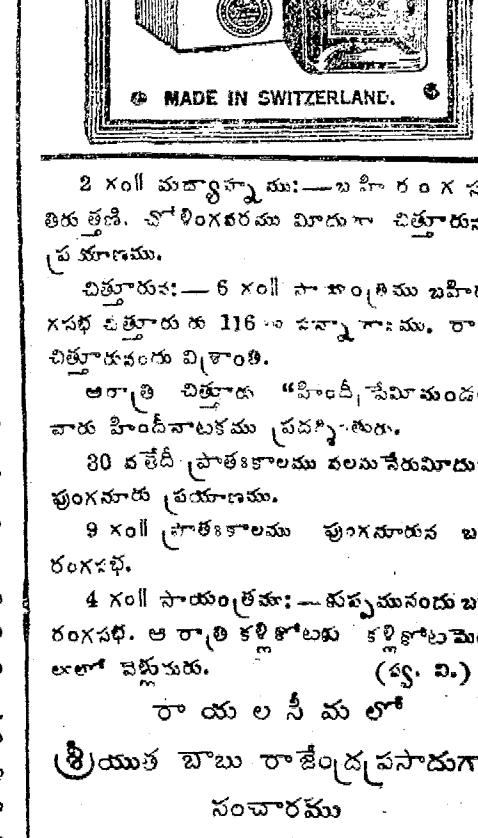 MADE IN SWITZERLAND.
2 గం॥ మధ్యాహ్నము:— బ హి ర ం గ స
తిరుత్తణి. చోళింగవరము మీదుగా చిత్తూరున
ప్రయాణము.
చిత్తూరున:— 6 గం॥ సాయంత్రము బహిరం
గసభ చిత్తూరుకు 116 సన్మానము. రా
చిత్తూరునందు విశ్రాంతి.
ఆరాత్రి చిత్తూరు "హిందీ ప్రేమిమండ
వారు హిందీనాటకము ప్రదర్శింతురు.
30 వ తేదీ ప్రాతఃకాలము పలమనేరుమీదు
పుంగనూరు ప్రయాణము.
9 గం॥ ప్రాతఃకాలము పుంగనూరున బ
రంగసభ.
4 గం॥ సాయంత్రము:— కుప్పమునందు బ
రంగసభ. ఆ రాత్రి కళ్లికోటకు కళ్లికోటమె
లులో వెళ్లుదురు. (ప్ర. వి.)
రా య ల సీ మ లో
శ్రీయుత బాబు రాజేంద్రప్రసాదుగా
సంచారము